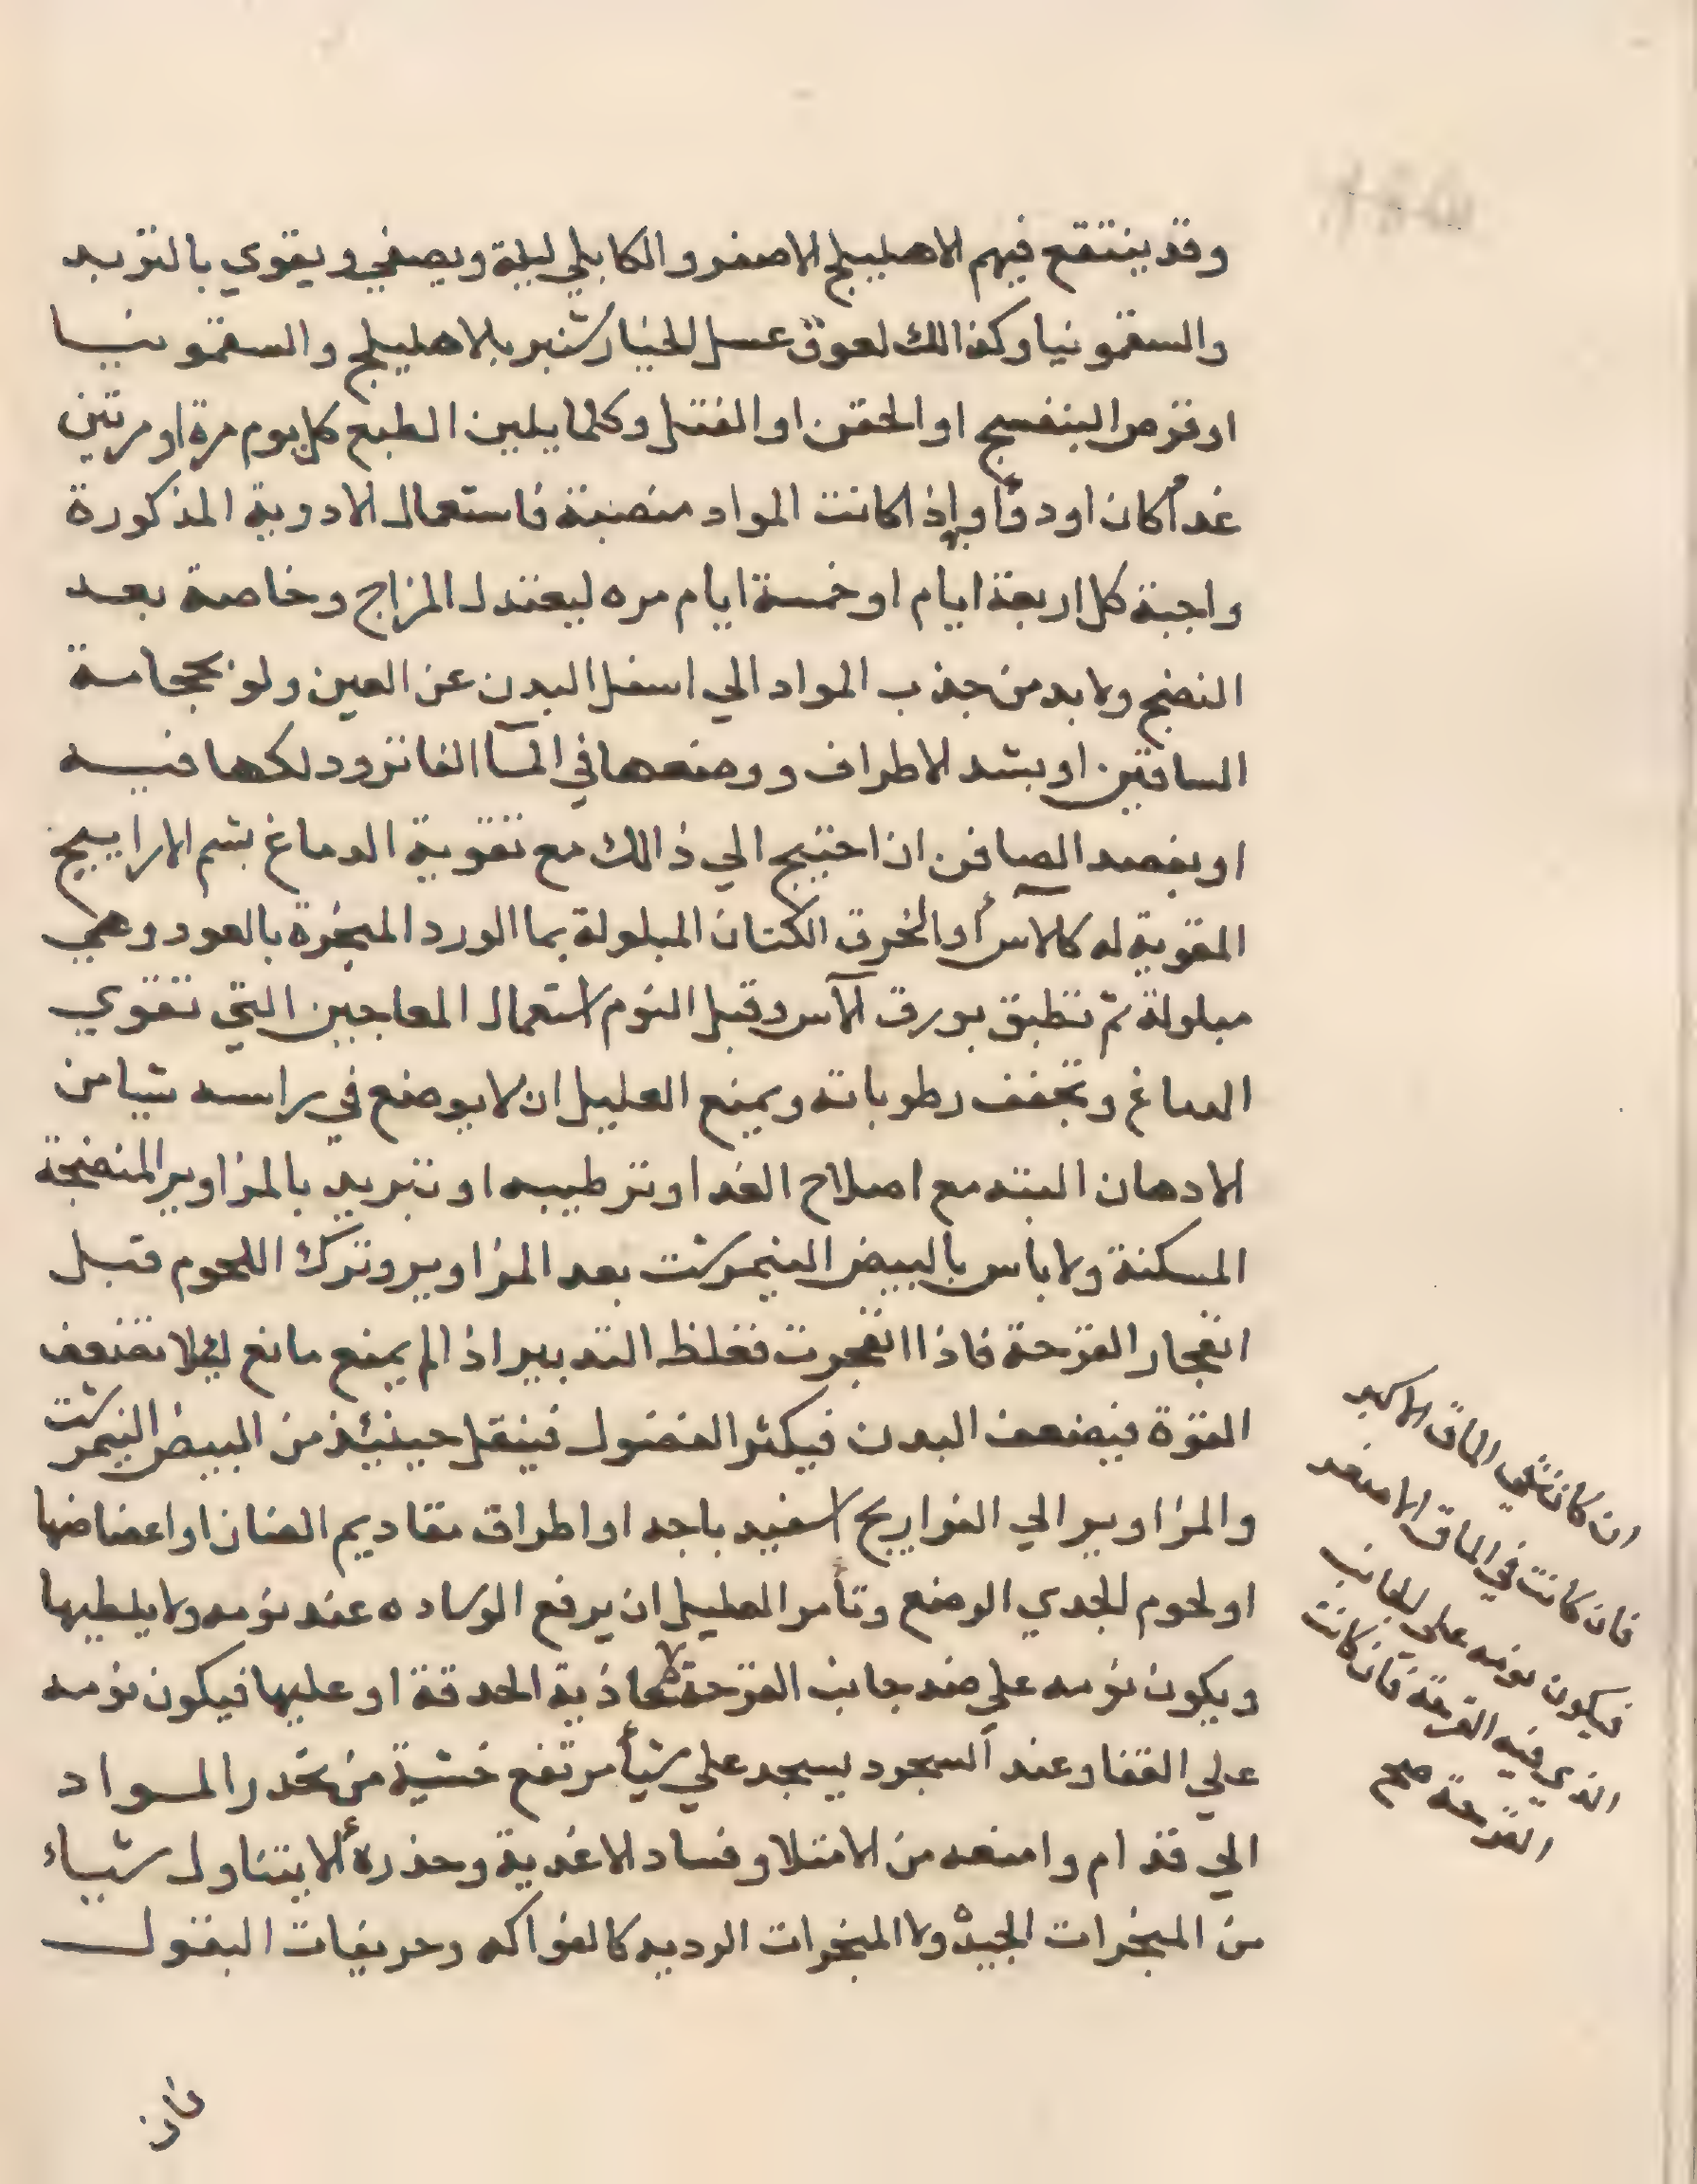 وقد ينتقع فيهم الاهليلج الاصفر والكابلي ليلة ويصفي ويقوي بالتربد
والسقمونيا وكذالك لعوق عسل الخيار شنبر بالاهليلج والسقمونيا
او قرص البنفسج او الحقن او الفتل وكلما يلين الطبع كل يوم مرة او مرتين
غدأ كان او دوأ واذا كانت المواد منصبة فاستعمال الادوية المذكورة
واجبة كل اربعة ايام او خمسة ايام مره ليعتدل المزاج وخاصة بعد
النضج ولا بد من جذب المواد الي اسفل البدن عن العين ولو بحجامة
الساقين او بشد الاطراف ووضعها في المآ الفاتر ودلكها فيه
او بفصد الصافن ان احتيج الي ذالك مع تقوية الدماغ بشم الاراييج
المقوية له كالاس أو الخرق الكتان المبلولة بما الورد المبخرة بالعود وهي
مبلولة ثم تطبق بورق الآس وقبل النوم استعمال المعاجين التي تقوي
الدماغ وتجفف رطوباته ويمنع العليل ان لا يوضع في راسه شيا من
الادهان البته مع اصلاح الغدا وترطيبه او تبريد بالمزاوير المنضجة
المسكنة ولا باس بالبيض النيمرشت بعد المزاوير وترك اللحوم قبل
انفجار القرحة فاذا انفجرت فغلظ التدبير اذا لم يمنع مانع ليلا تضعف
القوة فيضعف البدن فيكثر الفضول فينقل حينيئذ من البيض النيمرشت
والمزاوير الي الفراريج اسفيد باجه او اطراف مقاديم الضان او اعضاضها
او لحوم الجدي الرضع وتأمر العليل ان يرفع الوساده عند نومه ولا يلطيها
ويكون نومه علي ضد جانب القرحة محاذية الحدقة او عليها فيكون نومه
علي القفا وعند السجود يسجد علي شيأ مرتفع خشية من تحدر المواد
الي قدام وامنعه من الامتلا وفساد الاغذية وحذرة ألا يتناول شياء
من المبخرات الجيده ولا المبخرات الرديه كالفواكه وحريفات البقول
ان كانت في الماق الاكبر
فان كانت في الماق الاصغر
فيكون نومه علي الجانب
الذي فيه القرحة فان كانت
القرحة صح